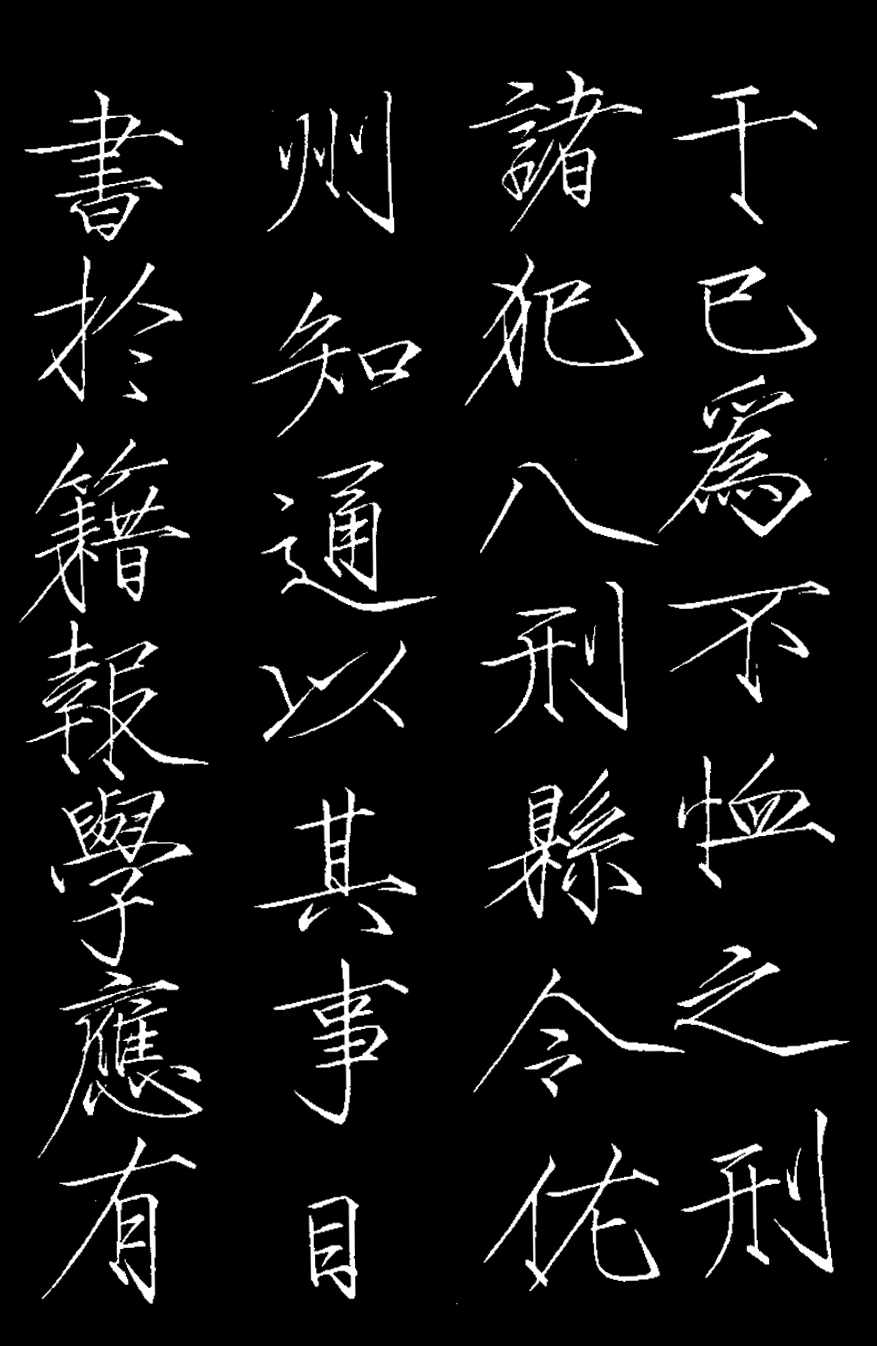 干已爲不恤之刑
諸犯八刑縣令佐
州知通以其事目
書於籍報學應有